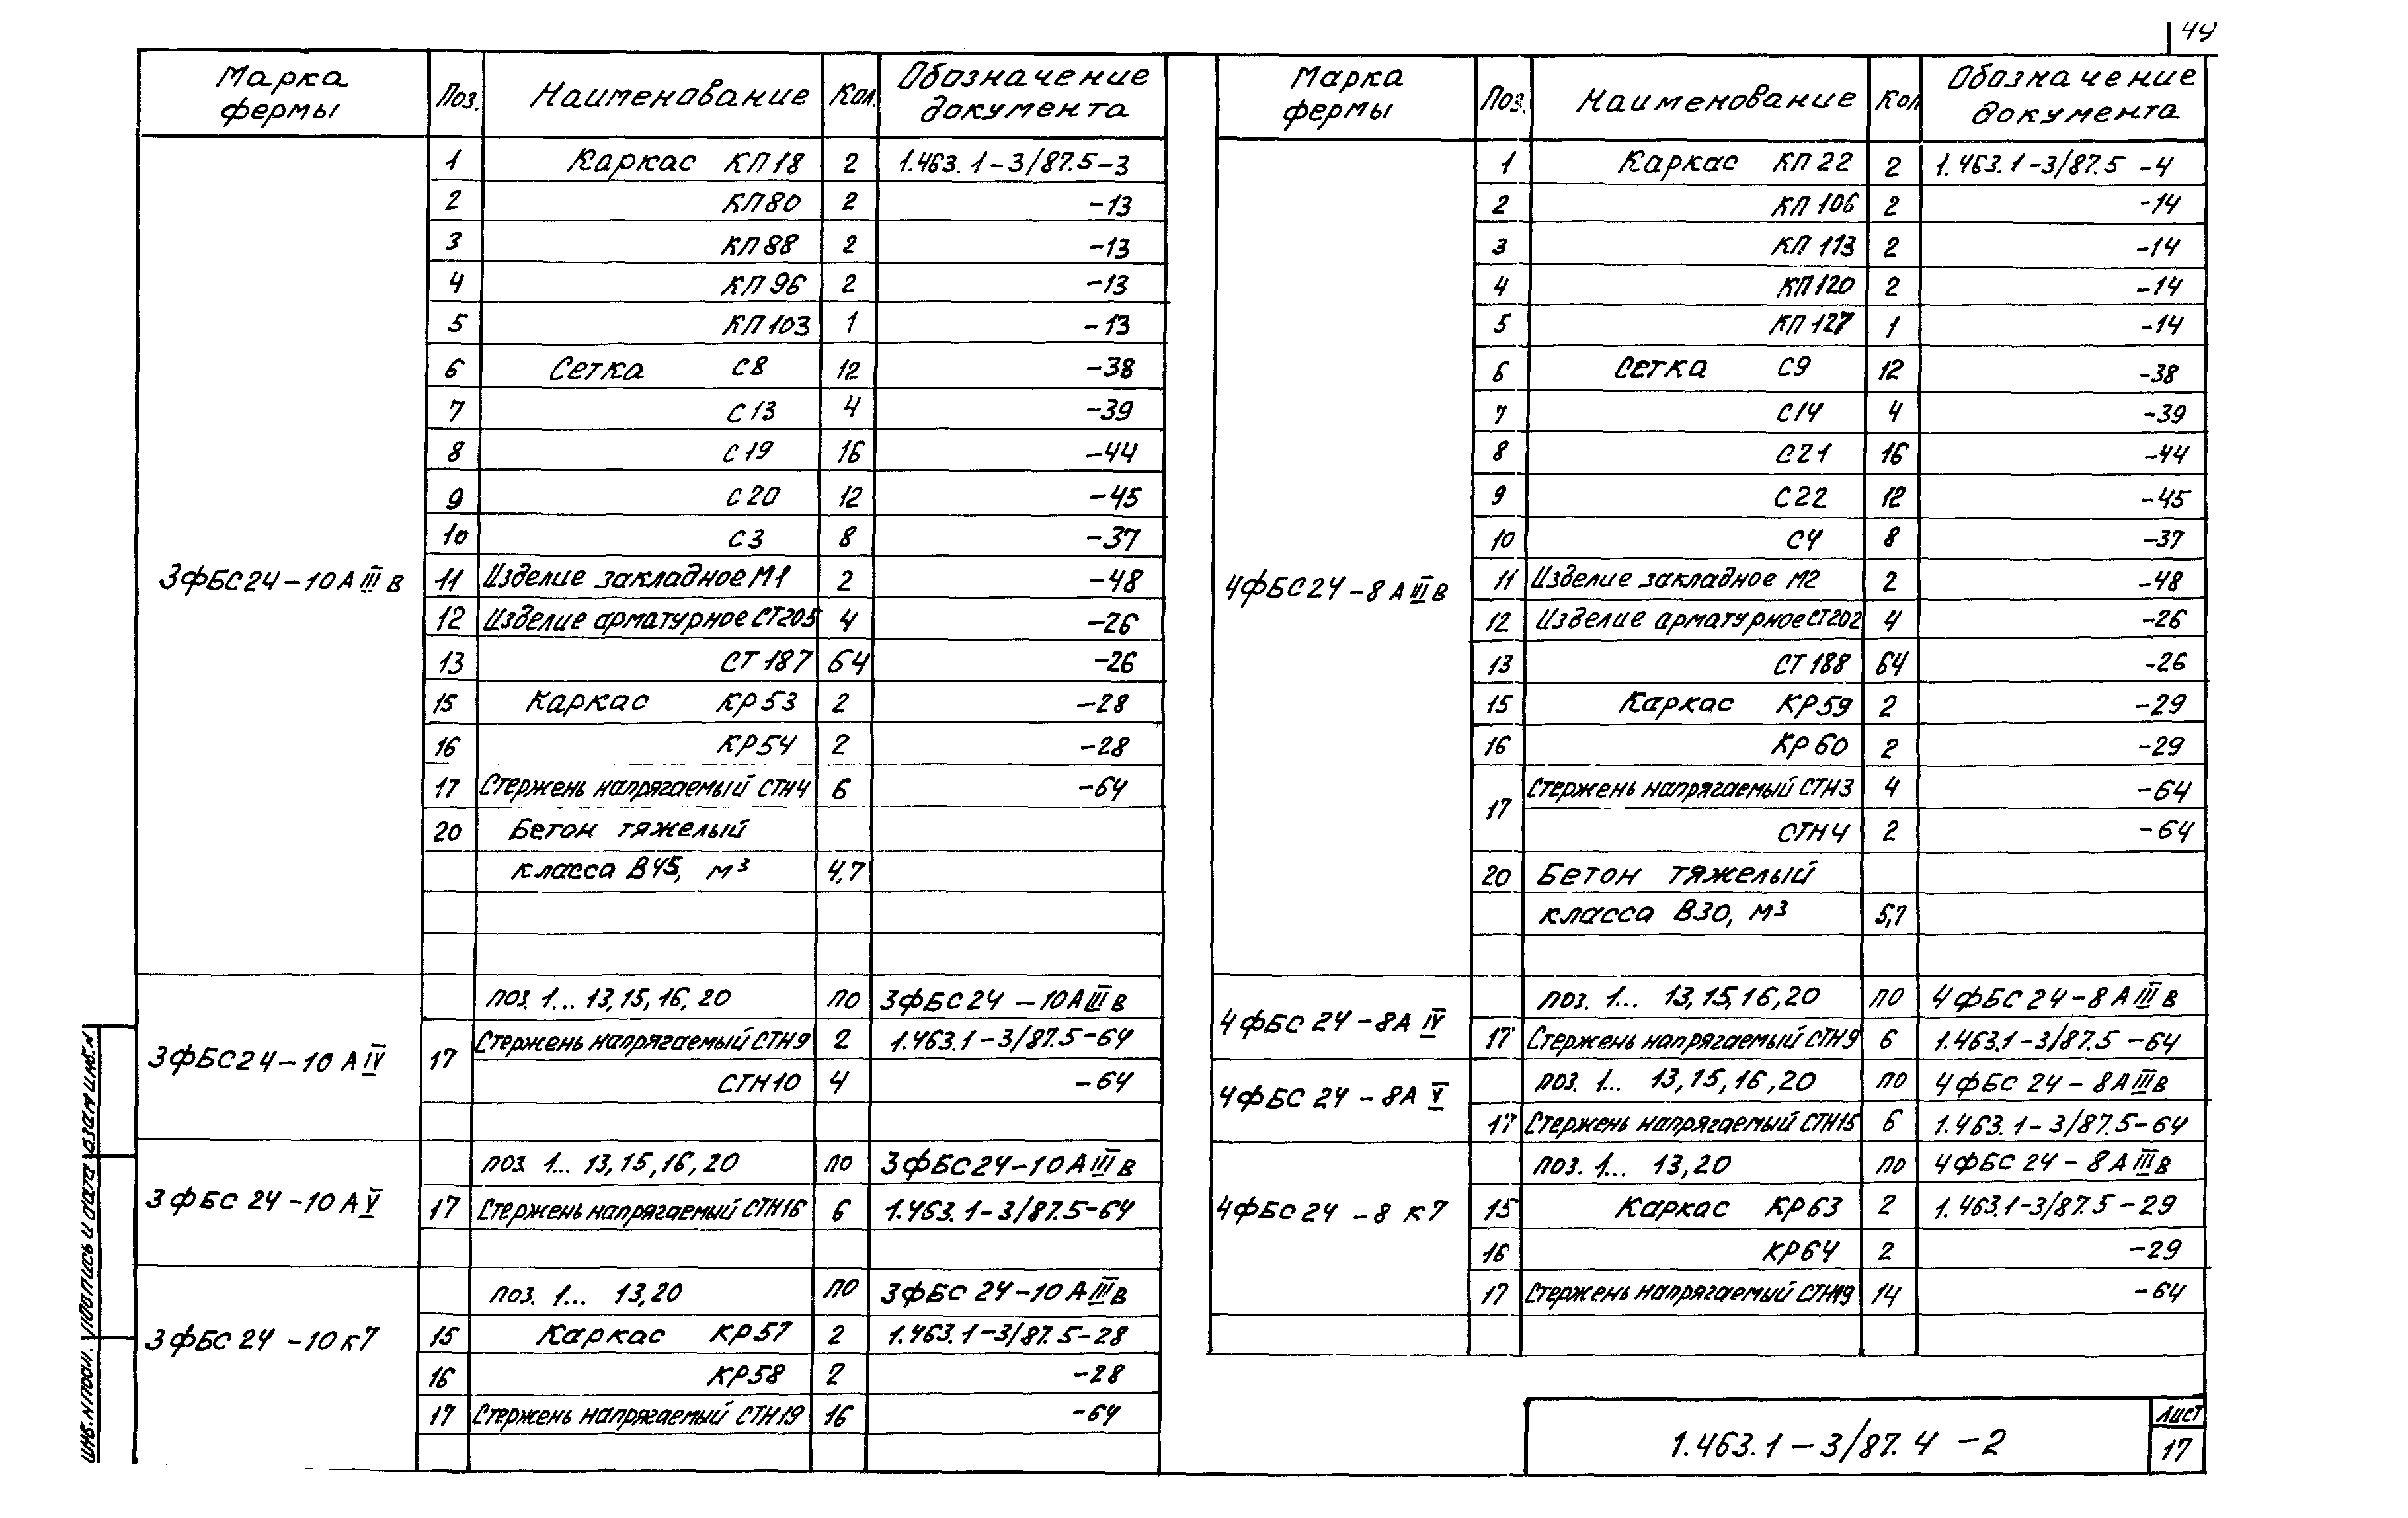 49
Марка фермы | Поз. | Наименование | Кол. | Обозначение документа
3ФБС24-10АIIIв
1 | Каркас КП18 | 2 | 1.463.1-3/87.5-3
2 | КП80 | 2 | -13
3 | КП88 | 2 | -13
4 | КП96 | 2 | -13
5 | КП103 | 1 | -13
6 | Сетка С8 | 12 | -38
7 | С13 | 4 | -39
8 | С19 | 16 | -44
9 | С20 | 12 | -45
10 | С3 | 8 | -37
11 | Изделие закладное М1 | 2 | -48
12 | Изделие арматурное СТ205 | 4 | -26
13 | СТ187 | 64 | -26
15 | Каркас КР53 | 2 | -28
16 | КР54 | 2 | -28
17 | Стержень напрягаемый СТН4 | 6 | -64
20 | Бетон тяжелый
класса В45, м³ | 4,7
3ФБС24-10АIV
поз. 1... 13,15,16,20 | по | 3ФБС24-10АIIIв
17 | Стержень напрягаемый СТН9 | 2 | 1.463.1-3/87.5-64
СТН10 | 4 | -64
3ФБС24-10АV
поз 1... 13,15,16,20 | по | 3ФБС24-10АIIIв
17 | Стержень напрягаемый СТН16 | 6 | 1.463.1-3/87.5-64
3ФБС24-10К7
поз. 1... 13,20 | по | 3ФБС24-10АIIIв
15 | Каркас КР57 | 2 | 1.463.1-3/87.5-28
16 | КР58 | 2 | -28
17 | Стержень напрягаемый СТН19 | 16 | -64
Марка фермы | Поз. | Наименование | Кол | Обозначение документа
4ФБС24-8АIIIв
1 | Каркас КП22 | 2 | 1.463.1-3/87.5-4
2 | КП106 | 2 | -14
3 | КП113 | 2 | -14
4 | КП120 | 2 | -14
5 | КП127 | 1 | -14
6 | Сетка С9 | 12 | -38
7 | С14 | 4 | -39
8 | С21 | 16 | -44
9 | С22 | 12 | -45
10 | С4 | 8 | -37
11 | Изделие закладное М2 | 2 | -48
12 | Изделие арматурное СТ202 | 4 | -26
13 | СТ188 | 64 | -26
15 | Каркас КР59 | 2 | -29
16 | КР60 | 2 | -29
17 | Стержень напрягаемый СТН3 | 4 | -64
СТН4 | 2 | -64
20 | Бетон тяжелый
класса В30, м³ | 5,7
4ФБС24-8АIV
поз. 1... 13,15,16,20 | по | 4ФБС24-8АIIIв
17 | Стержень напрягаемый СТН9 | 6 | 1.463.1-3/87.5-64
4ФБС24-8АV
поз. 1... 13,15,16,20 | по | 4ФБС24-8АIIIв
17 | Стержень напрягаемый СТН15 | 6 | 1.463.1-3/87.5-64
4ФБС24-8К7
поз. 1... 13,20 | по | 4ФБС24-8АIIIв
15 | Каркас КР63 | 2 | 1.463.1-3/87.5-29
16 | КР64 | 2 | -29
17 | Стержень напрягаемый СТН19 | 14 | -64
1.463.1-3/87.4-2
Лист
17
Инв.Nподл. Подпись и дата Взам инв.N